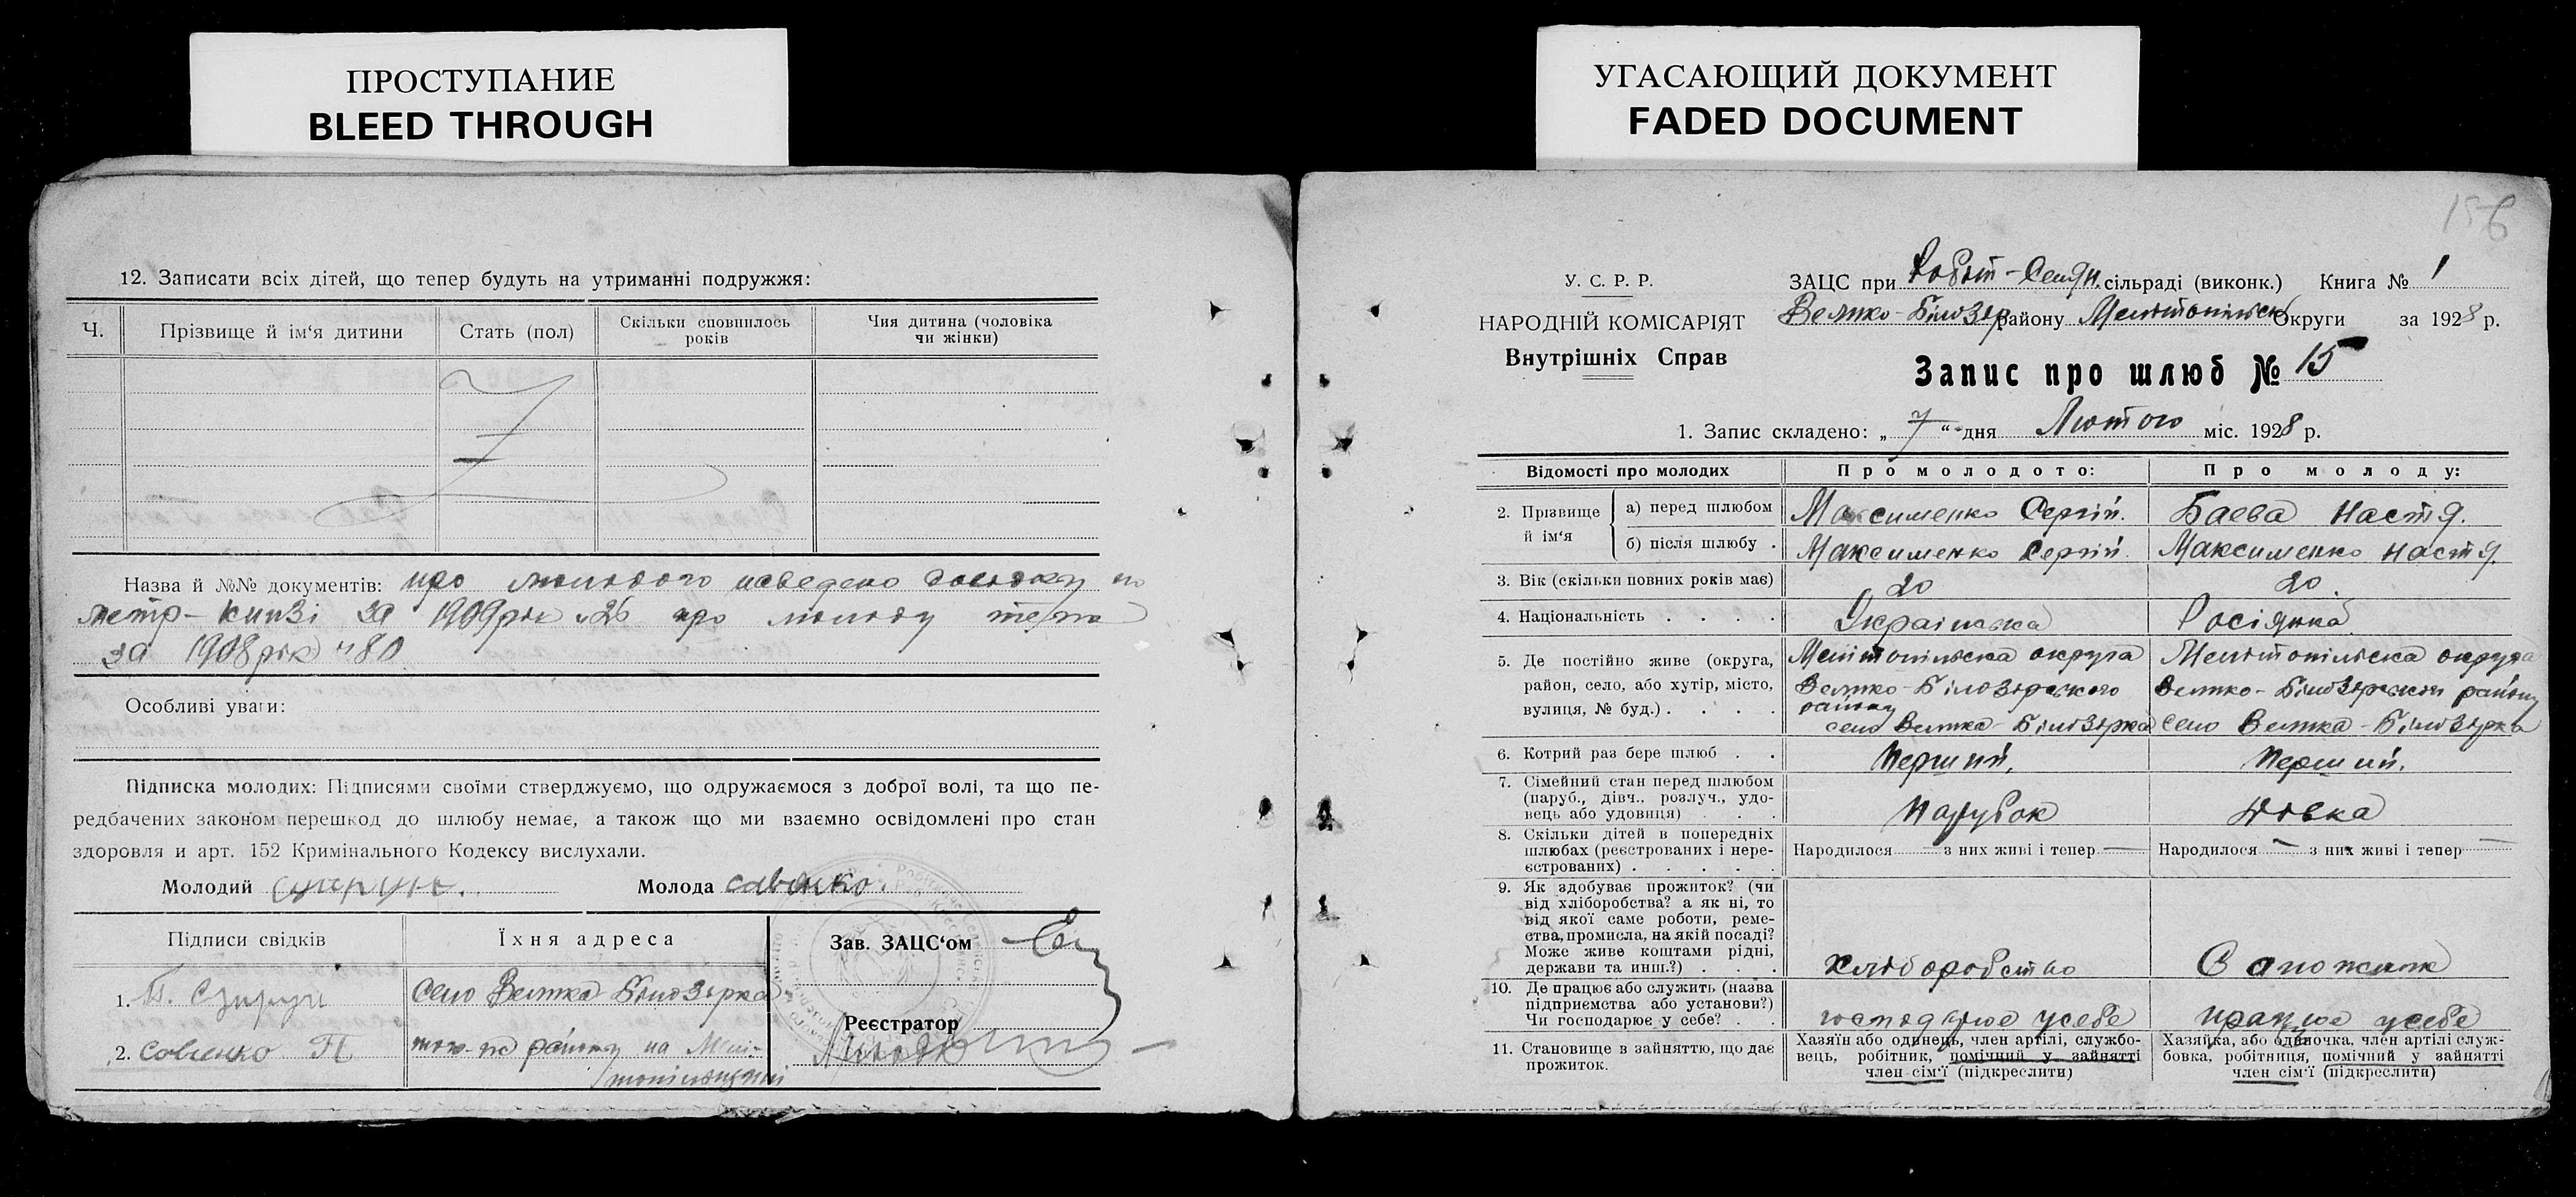 ПРОСТУПАНИЕ
BLEED THROUGH
12. Записати всіх дітей, що тепер будуть на утриманні подружжя:
Ч. Прізвище й ім‘я дитини Стать (пол) Скільки сповнилось років Чия дитина (чоловіка чи жінки)
Назва й №№ документів: про молодого наведено довідку по
метр-книзі за 1909 рік №26 про молоду теж
за 1908 рік №80
Особливі уваги:
Підписка молодих: Підписями своїми стверджуємо, що одружаємося з доброї волі, та що пе-
редбачених законом перешкод до шлюбу немає, а також що ми взаємно освідомлені про стан
здоровля и арт. 152 Кримінального Кодексу вислухали.
Молодий Молода савенко.
Підписи свідків Їхня адреса Зав. ЗАЦС‘ом
1. Село Велика Білозірка
Реєстратор
2. Совенко П району на Мелі-
топільщині
УГАСАЮЩИЙ ДОКУМЕНТ
FADED DOCUMENT
156
У. С. Р. Р.
НАРОДНІЙ КОМІСАРІЯТ
Внутрішніх Справ
ЗАЦС при Робіт-Селян. сільраді (виконк.) Книга № 1
Велико-Білозір району Мелітопільск Округи за 1928 р.
Запис про шлюб № 15
1. Запис складено: „ 7 “ дня Лютого міс. 1928 р.
Відомості про молодих Про молодого: Про молоду:
2. Прізвище й ім‘я
а) перед шлюбом Максименко Сергій. Баева Настя.
б) після шлюбу . Максименко Сергій Максименко Настя.
3. Вік (скільки повних років має) 20 20.
4. Національність . . . . Українська Росіянка
5. Де постійно живе (округа, район, село, або хутір, місто, вулиця, № буд.) . . . .
Мелітопільска округа Мелітопільска округа
Велико-Білозірського району Велико-Білозірського району
село Велика-Білозірка село Велика-Білозірка
6. Котрий раз бере шлюб . . Перший. Перший.
7. Сімейний стан перед шлюбом (паруб., дівч., розлуч., удовець або удовиця) . . . Парубок Дівка
8. Скільки дітей в попередніх шлюбах (реєстрованих і нереєстрованих) . . . . .
Народилося — з них живі і тепер — Народилося — з них живі і тепер —
9. Як здобуває прожиток? (чи від хліборобства? а як ні, то від якої саме роботи, ремества, промисла, на якій посаді? Може живе коштами рідні, держави та инш.?) . . . Хліборобство
10. Де працює або служить (назва підприємства або установи?) Чи господарює у себе? . . господарює усебе працює усебе
11. Становище в зайняттю, що дає прожиток.
Хазяїн або одинець, член артілі, службовець, робітник, помічний у зайнятті член сім‘ї (підкреслити)
Хазяйка, або одиночка, член артілі службовка, робітниця, помічний у зайнятті член сім‘ї (підкреслити)